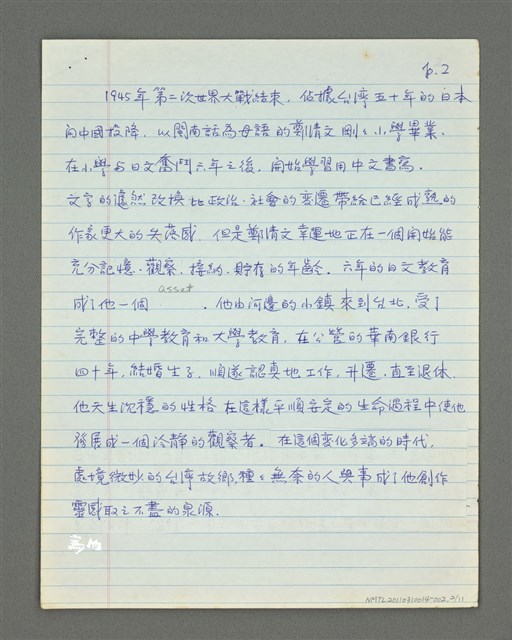 p.2
1945年第二次世界大戰結束，佔據台湾五十年的日本
向中國投降，以閩南話為母語的鄭清文剛剛小學畢業，
在小學与日文奮鬥六年之後，開始學習用中文書寫。
文字的遽然改換比政治、社會的变遷帶給已經成熟的
作家更大的失落感，但是鄭清文幸運地正在一個開始能
充分記憶、觀察、接納、貯存的年齡。六年的日文教育
asset
成了他一個　　　。他由河邊的小鎮來到台北，受了
完整的中學教育和大學教育，在公營的華南銀行
四十年，結婚生子，順遂認真地工作，升遷，直至退休，
他天生沈穩的性格在這樣平順安定的生命過程中使他
發展成一個冷靜的觀察者。在這個变化多端的時代，
處境微妙的台湾故鄉，種種無奈的人與事成了他創作
靈感取之不盡的泉源。
NMTL20110310014-002,2/11